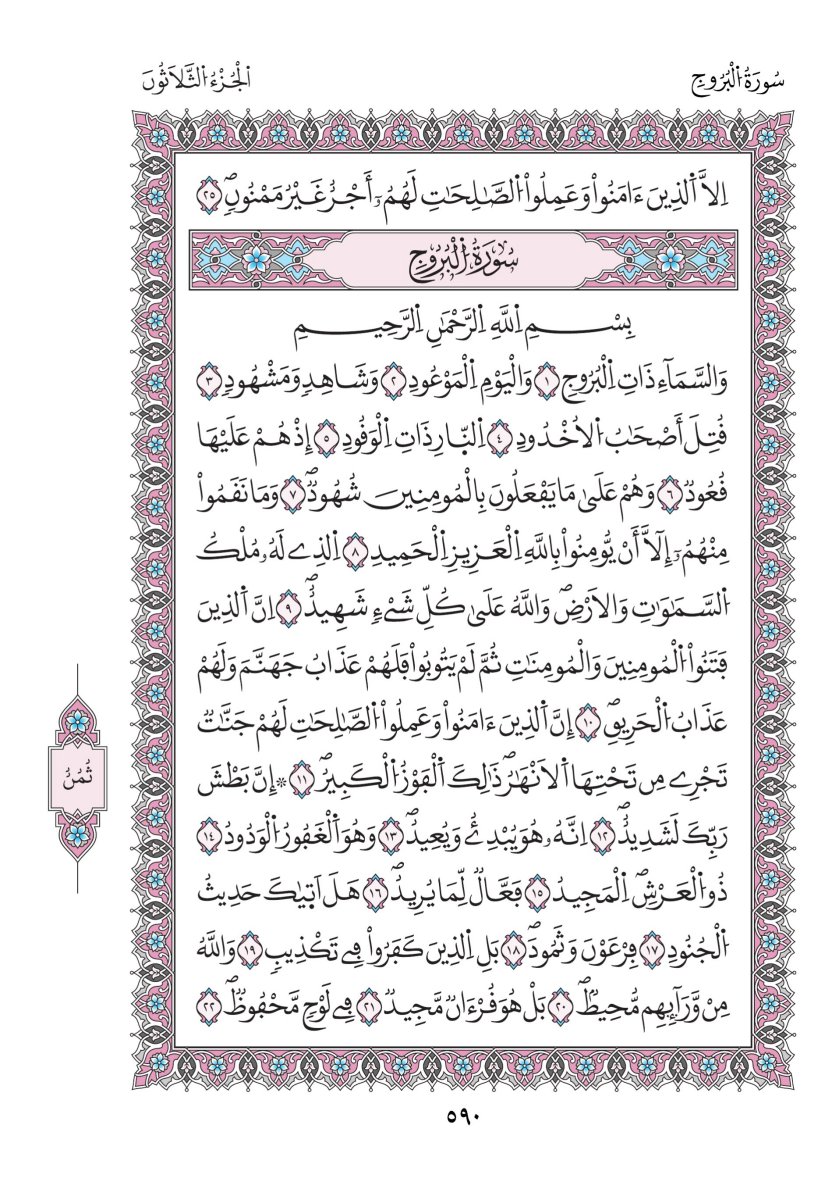 سُورَةُ اُ۬لْبُرُوجِ
اَ۬لْجُزْءُ اُ۬لثَّلَاثُونَ
اِلَّا اَ۬لذِينَ ءَامَنُواْ وَعَمِلُواْ اُ۬لصَّٰلِحَٰتِ لَهُمُۥٓ أَجْرٌ غَيْرُ مَمْنُونٖۖ ٢٥
سُورَةُ اُ۬لْبُرُوجِ
بِسْمِ اِ۬للَّهِ اِ۬لرَّحْمَٰنِ اِ۬لرَّحِيمِ
وَالسَّمَآءِ ذَاتِ اِ۬لْبُرُوجِ ١ وَالْيَوْمِ اِ۬لْمَوْعُودِ ٢ وَشَاهِدٖ وَمَشْهُودٖ ٣
قُتِلَ أَصْحَٰبُ اُ۬لُاخْدُودِ ٤ اِ۬لنّ۪ارِ ذَاتِ اِ۬لْوَقُودِ ٥ إِذْ هُمْ عَلَيْهَا
قُعُودٞ ٦ وَهُمْ عَلَىٰ مَا يَفْعَلُونَ بِالْمُومِنِينَ شُهُودٞۖ ٧ وَمَا نَقَمُواْ
مِنْهُمُۥٓ إِلَّآ أَنْ يُّومِنُواْ بِاللَّهِ اِ۬لْعَزِيزِ اِ۬لْحَمِيدِ ٨ اِ۬لذِے لَهُۥ مُلْكُ
اُ۬لسَّمَٰوَٰتِ وَالَارْضِۖ وَاللَّهُ عَلَىٰ كُلِّ شَےْءٖ شَهِيدٌۖ ٩ إِنَّ اَ۬لذِينَ
فَتَنُواْ اُ۬لْمُومِنِينَ وَالْمُومِنَٰتِ ثُمَّ لَمْ يَتُوبُواْ فَلَهُمْ عَذَابُ جَهَنَّمَ وَلَهُمْ
عَذَابُ اُ۬لْحَرِيقِۖ ١٠ إِنَّ اَ۬لذِينَ ءَامَنُواْ وَعَمِلُواْ اُ۬لصَّٰلِحَٰتِ لَهُمْ جَنَّٰتٞ
تَجْرِے مِن تَحْتِهَا اَ۬لَانْهَٰرُۖ ذَٰلِكَ اَ۬لْفَوْزُ اُ۬لْكَبِيرُۖ ١١ ۞إِنَّ بَطْشَ
ثُمُنُ
رَبِّكَ لَشَدِيدٌۖ ١٢ اِنَّهُۥ هُوَ يُبْدِئُ وَيُعِيدُۖ ١٣ وَهُوَ اَ۬لْغَفُورُ اُ۬لْوَدُودُ ١٤
ذُو اُ۬لْعَرْشِۖ اِ۬لْمَجِيدُ ١٥ فَعَّالٞ لِّمَا يُرِيدُۖ ١٦ هَلَ اَت۪يٰكَ حَدِيثُ
اُ۬لْجُنُودِ ١٧ فِرْعَوْنَ وَثَمُودَۖ ١٨ بَلِ اِ۬لذِينَ كَفَرُواْ فِے تَكْذِيبٖ ١٩ وَاللَّهُ
مِنْ وَّرَآئِهِم مُّحِيطٌۖ ٢٠ بَلْ هُوَ قُرْءَانٞ مَّجِيدٞ ٢١ فِے لَوْحٖ مَّحْفُوظٞۖ ٢٢
٥٩٠